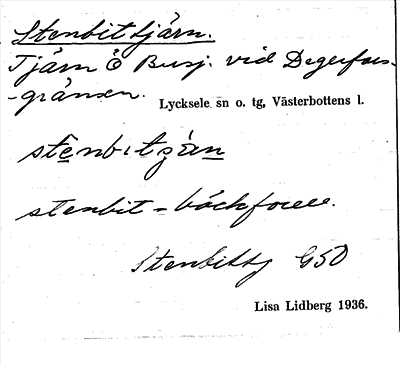 Stenbittjärn.
Tjärn Ö Busj. vid Degerfors-
-gränsen.
Lycksele sn o. tg, Västerbottens l.
stenbitjän
stenbit = bäckforell.
Stenbittj G5D
Lisa Lidberg 1936.